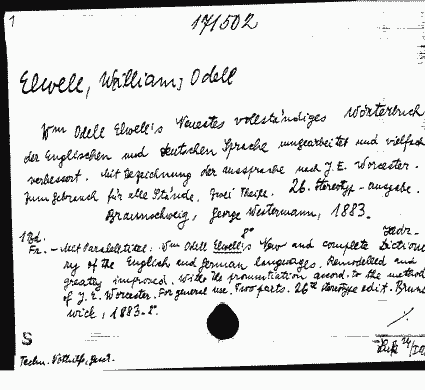 1
171502
Elwell, William, Odell
Wm Odell Elwell's Neuestes vollständiges Wörterbuch
der Englischen und deutschen Sprache umgearbeitet und vielfach
verbessert. Mit Bezeichnung der aussprache nach J. E. Worcester.
Zum Gebrauch für alle Stände. Zwei Theile. 26. Stereotyp-ausgabe.
Braunschweig, George Westermann, 1883.
8°
1 Bd.
Fr. - Mit Paralleltitel: Wm Odell Elwell's New and complete Dictiona
ry of the English and German languages. Remodelled and
greatly improved. With the pronunciation accord. to the method
of J. E. Worcester. For general use. Two parts. 26th stereotype edit. Bruns
wick, 1883. 8°.
S
Techn. Nothilfe, gesch.